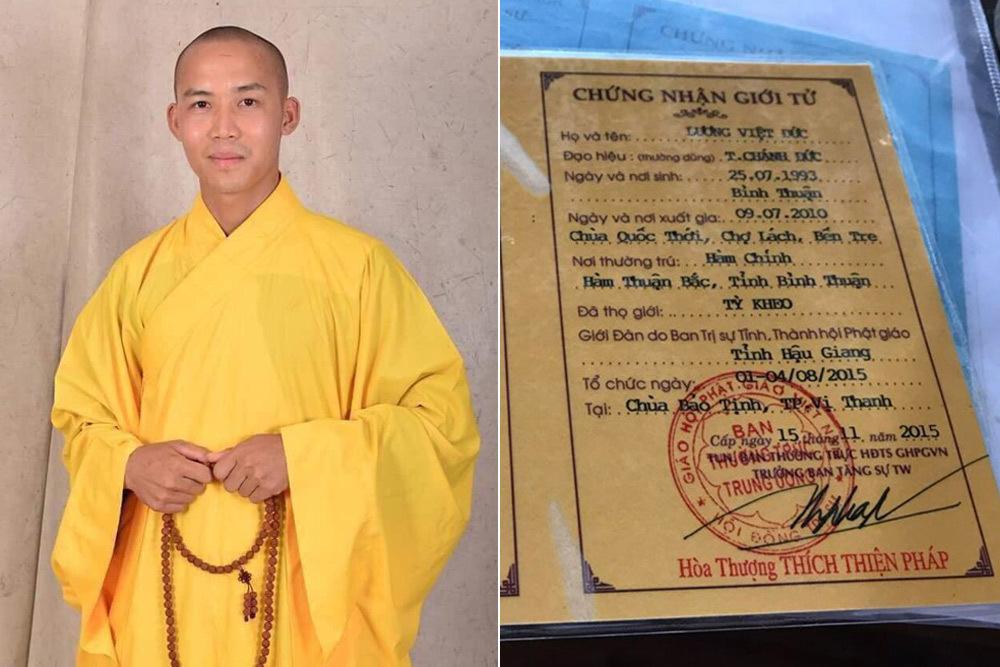 SƯ
CHỨNG NHẬ
CHỨNG NHẬN GIỚI TỬ
Họ và tên: LƯƠNG VIỆT ĐỨC
Đạo hiệu : (thường dùng) T.CHÁNH ĐỨC
Ngày và nơi sinh: 25.07.1993
Bình Thuận
Ngày và nơi xuất gia: 09.07.2010
Chùa Quốc Thới, Chợ Lách, Bến Tre
Nơi thường trú: Hàm Chính
Hàm Thuận Bắc, Tỉnh Bình Thuận
Đã thọ giới: TỲ KHEO
Giới Đàn do Ban Trị sự Tỉnh, Thành hội Phật giáo
Tỉnh Hậu Giang
Tổ chức ngày: 01-04/08/2015
Tại: Chùa Bảo Tịnh, TP.Vị Thanh
Cấp ngày 15 tháng 11 năm 2015
TUN. BAN THƯỜNG TRỰC HĐTS GHPGVN
TRƯỞNG BAN TĂNG SỰ TW
GIÁO HỘI PHẬT GIÁO
BAN
THƯỜNG TRỰC
TRUNG ƯƠNG
HỘI ĐỒNG
Hòa Thượng THÍCH THIỆN PHÁP